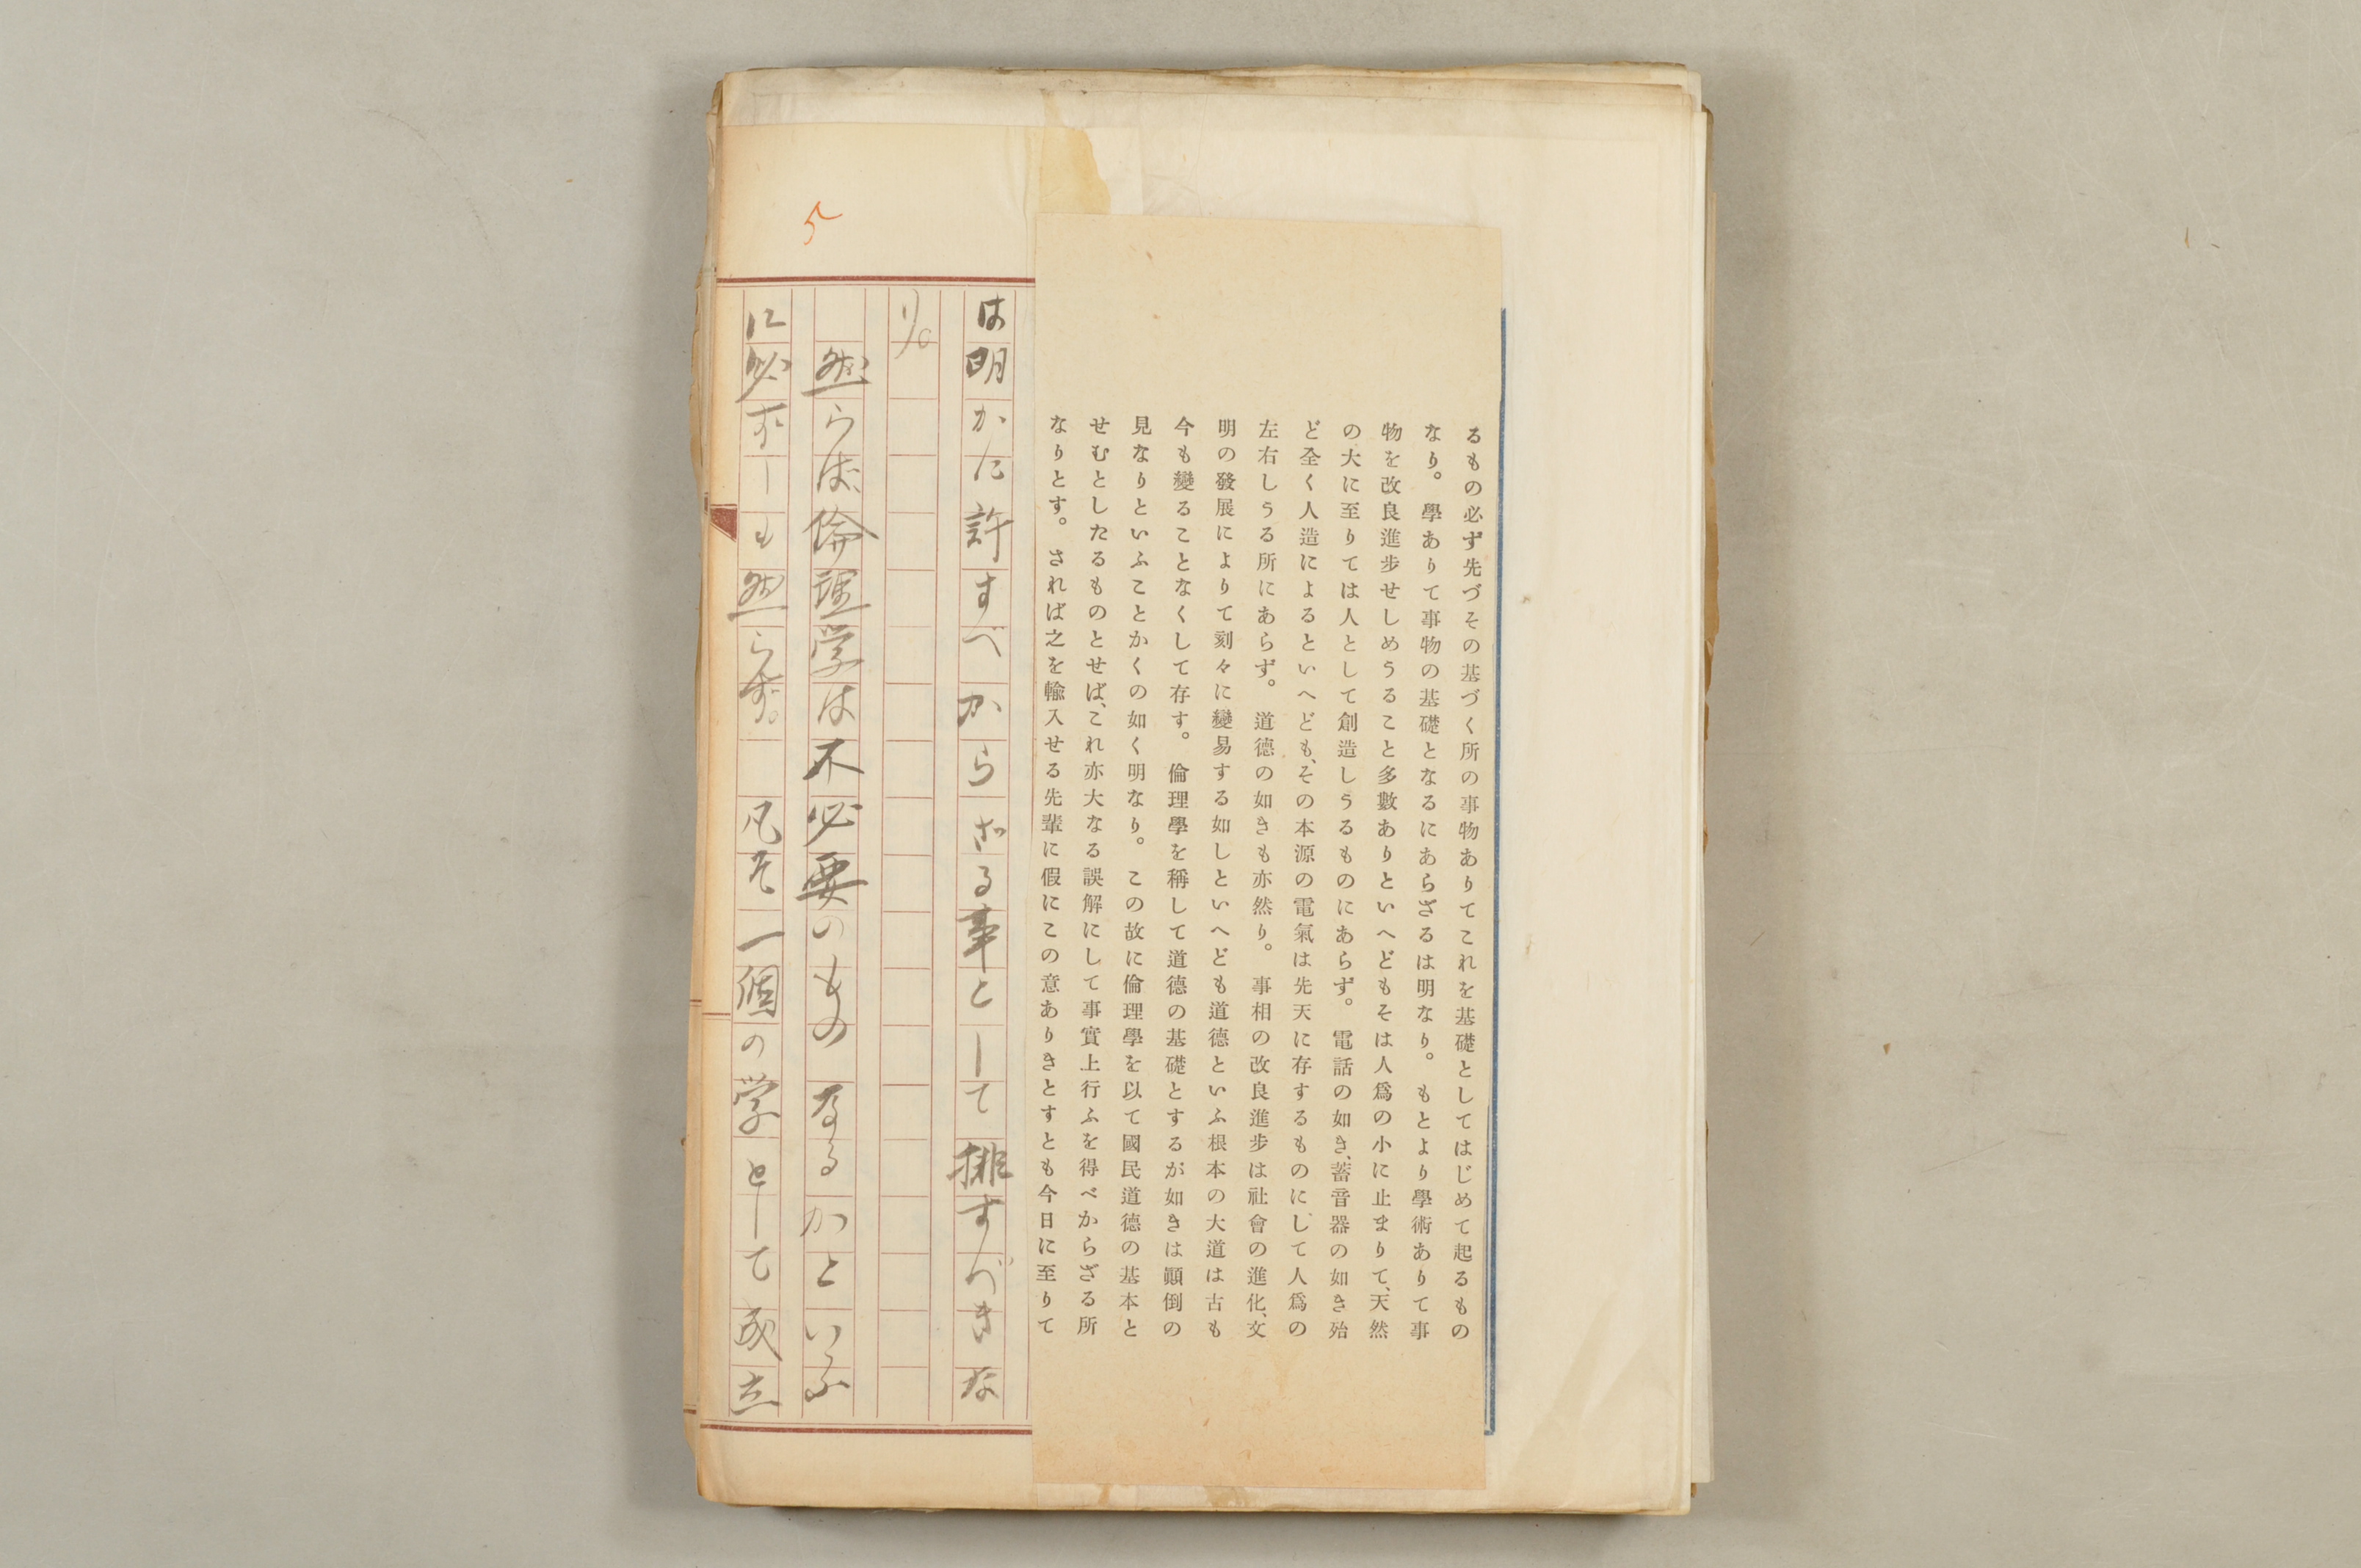 るもの必ず先づその基づく所の事物ありてこれを基礎としてはじめて起るもの
なり。學ありて事物の基礎となるにあらざるは明なり。もとより學術ありて事
物を改良進步せしめうること多數ありといへどもそは人爲の小に止まりて、天然
の大に至りては人として創造しうるものにあらず。電話の如き、蓄音器の如き殆
ど全く人造によるといへども、その本源の電氣は先天に存するものにして人爲の
左右しうる所にあらず。道德の如きも亦然り。事相の改良進步は社會の進化、文
明の發展によりて刻々に變易する如しといへども道德といふ根本の大道は古も
今も變ることなくして存す。倫理學を稱して道德の基礎とするが如きは顚倒の
見なりといふことかくの如く明なり。この故に倫理學を以て國民道德の基本と
せむとしたるものとせば、これ亦大なる誤解にして事實上行ふを得べからざる所
なりとす。されば之を輸入せる先輩に假にこの意ありきとすとも今日に至りて
は明かに許すべからざる事として排すべきな
り。
然らば倫理学は不必要のものなるかといふ
に必ずしも然らず。凡そ一個の学として成立
5